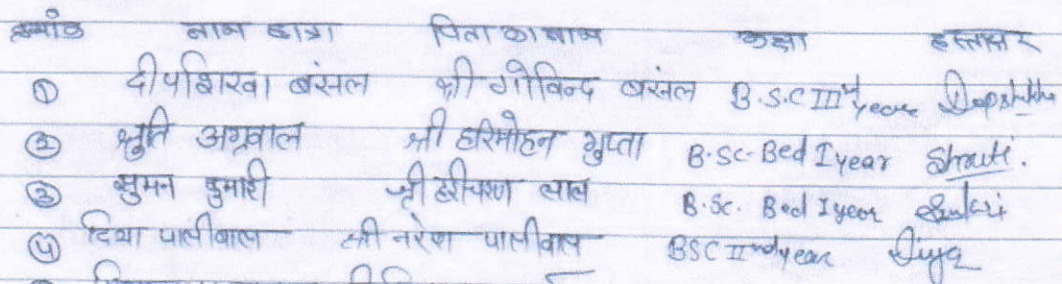 क्रमांक नाम छात्रा पिता का नाम कक्षा हस्ताक्षर
① दीपशिखा बंसल श्री गोविन्द बंसल B.S.C IIIrd year Deepshikha
② श्रुति अग्रवाल श्री हरिमोहन गुप्ता B.Sc. Bed I year Shruti.
③ सुमन कुमारी श्री हरीचरण लाल B.Sc. Bed I year
④ दिया पालीवाल श्री नरेश पालीवाल BSC IInd year Diya